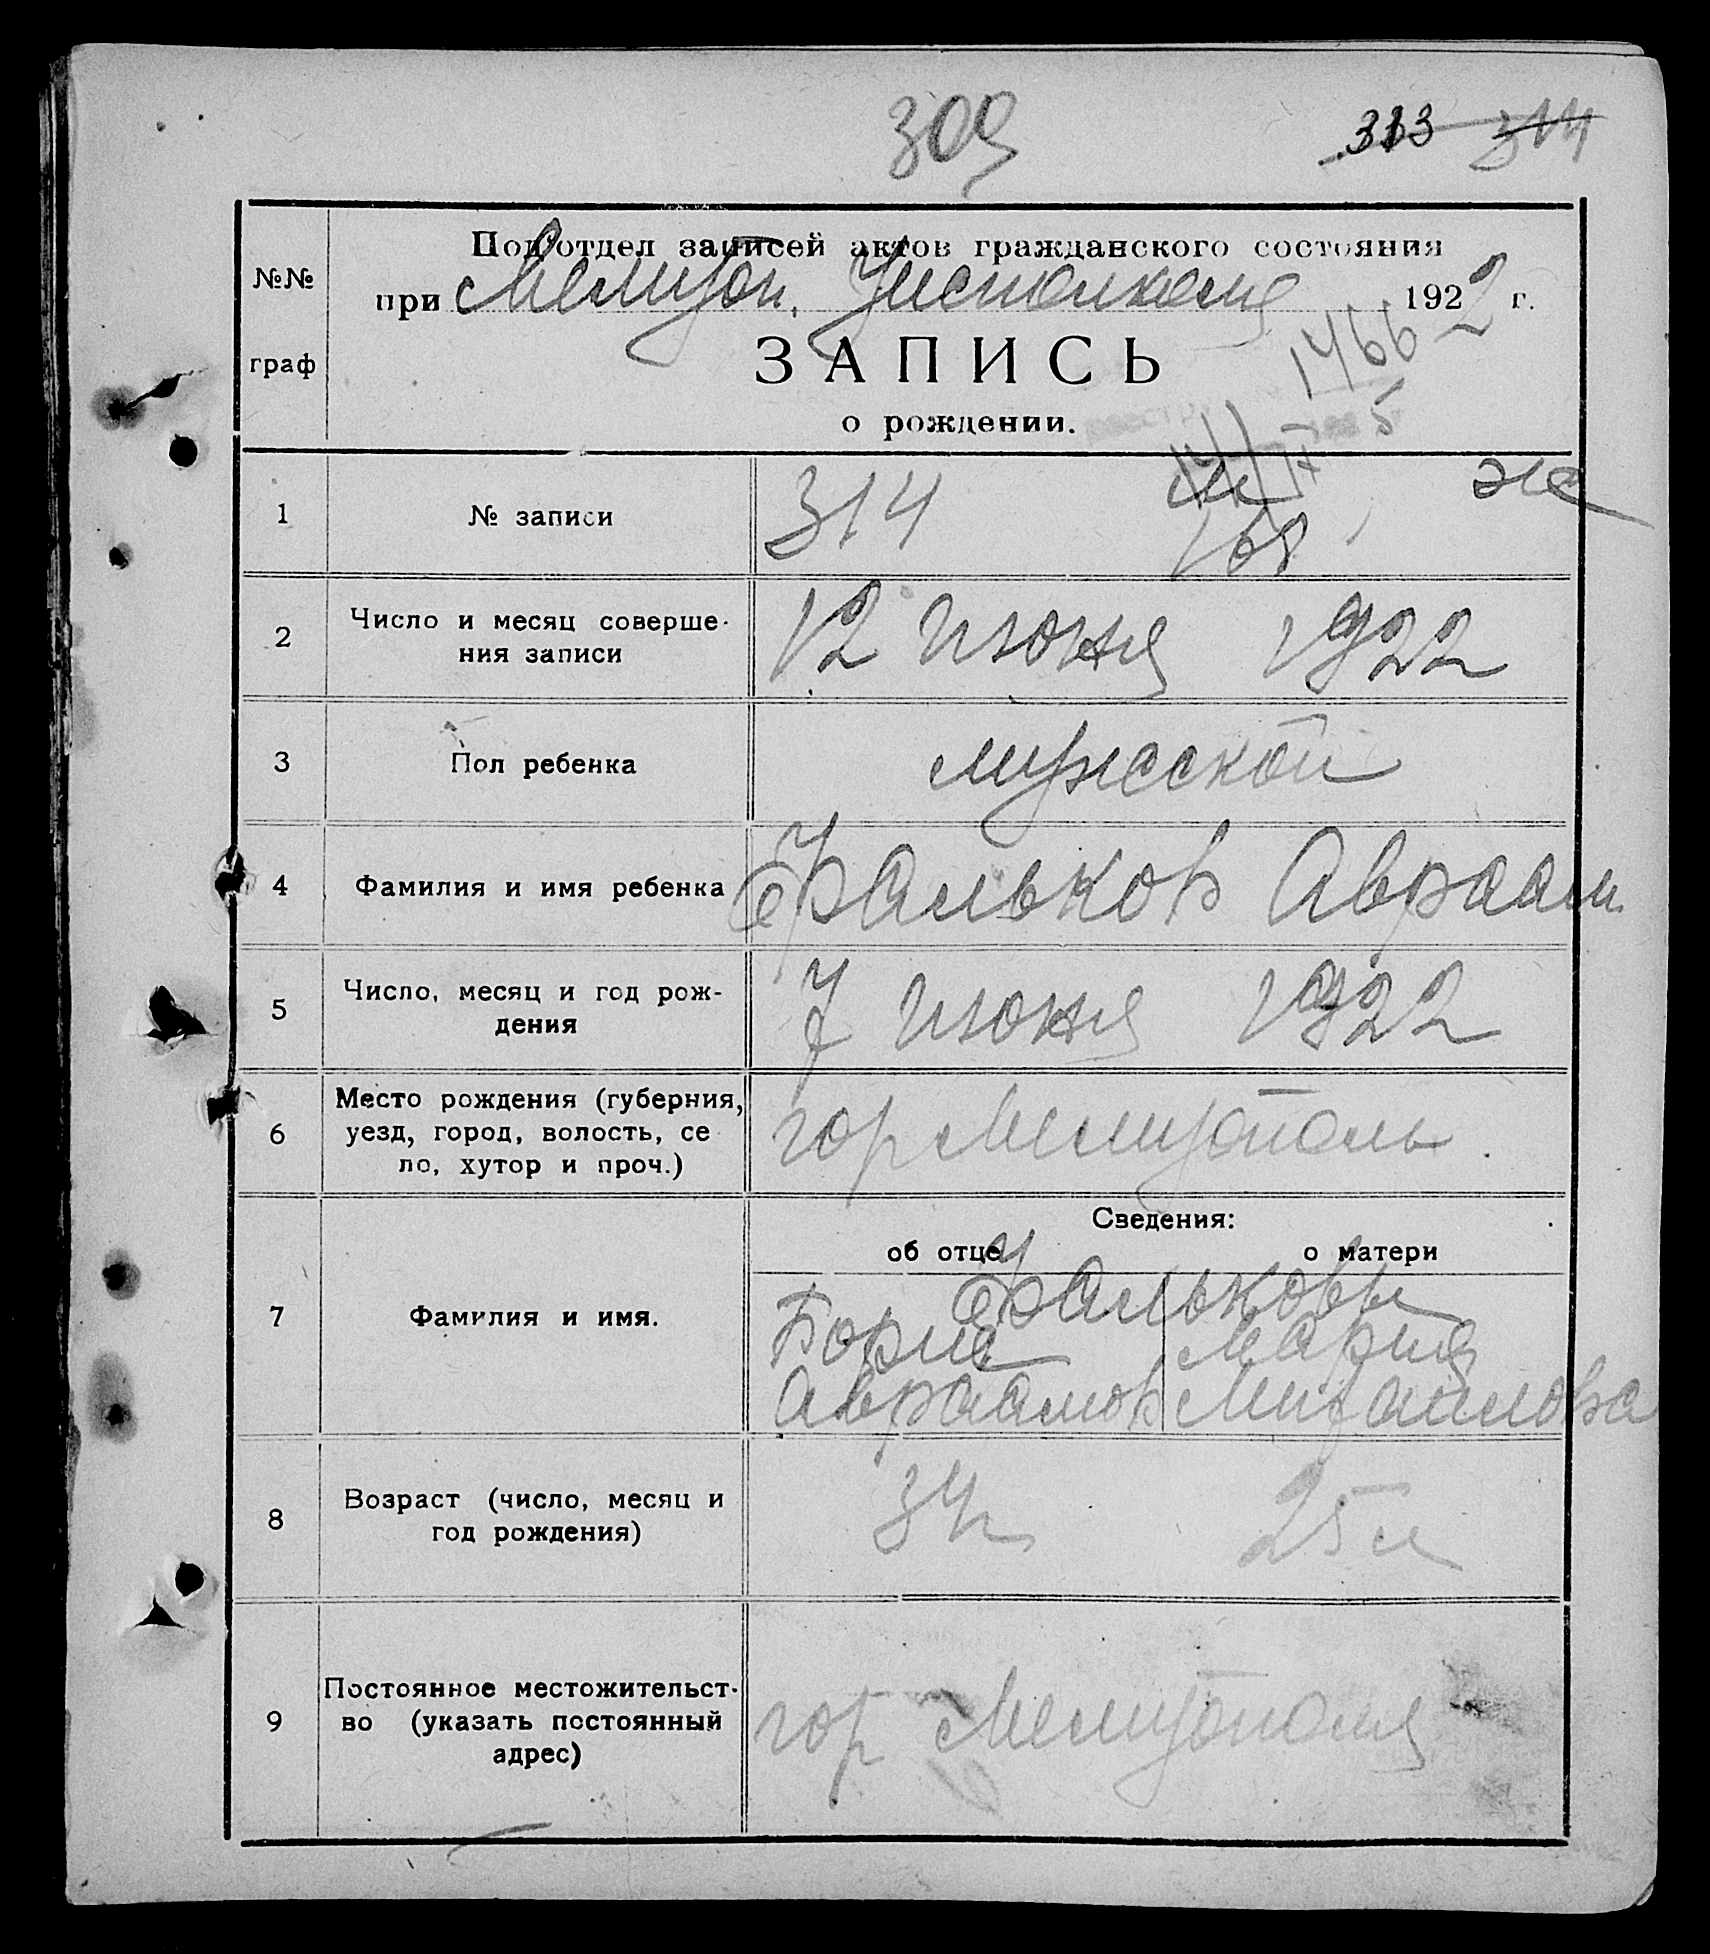 309
313 314
№№ граф
Подотдел записей актов гражданского состояния
при Мелитоп. Уисполкоме 1922 г.
1466
5
ЗАПИСЬ
о рождении.
1 № записи 314 м ж
168
2 Число и месяц соверше-
ния записи 12 июня 1922
3 Пол ребенка мужской
4 Фамилия и имя ребенка Фальков Авраам
5 Число, месяц и год рож-
дения 7 июня 1922
6 Место рождения (губерния,
уезд, город, волость, се
ло, хутор и проч.) гор Мелитополь
Сведения:
об отце о матери
7 Фамилия и имя. Фальковы
Борис Мария
Авраамов Михайлова
8 Возраст (число, месяц и
год рождения) 34 25 л
9 Постоянное местожительст-
во (указать постоянный
адрес) гор Мелитополя